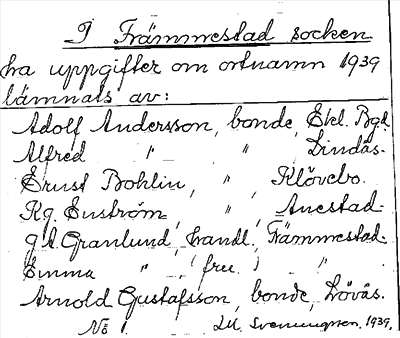 I Främmestad socken
ha uppgifter om ortnamn 1939
lämnats av:
Adolf Andersson, bonde, Ekl. Bgd.
Alfred " , " , Lindås.
Ernst Bohlin, " , Klövebo.
Rg. Enström, " , Anestad.
G. A. Granlund, handl., Främmestad.
Emma " , (fru) , " .
Arnold Gustafsson, bonde, Löväs.
Vg Sveningsson. 1939.